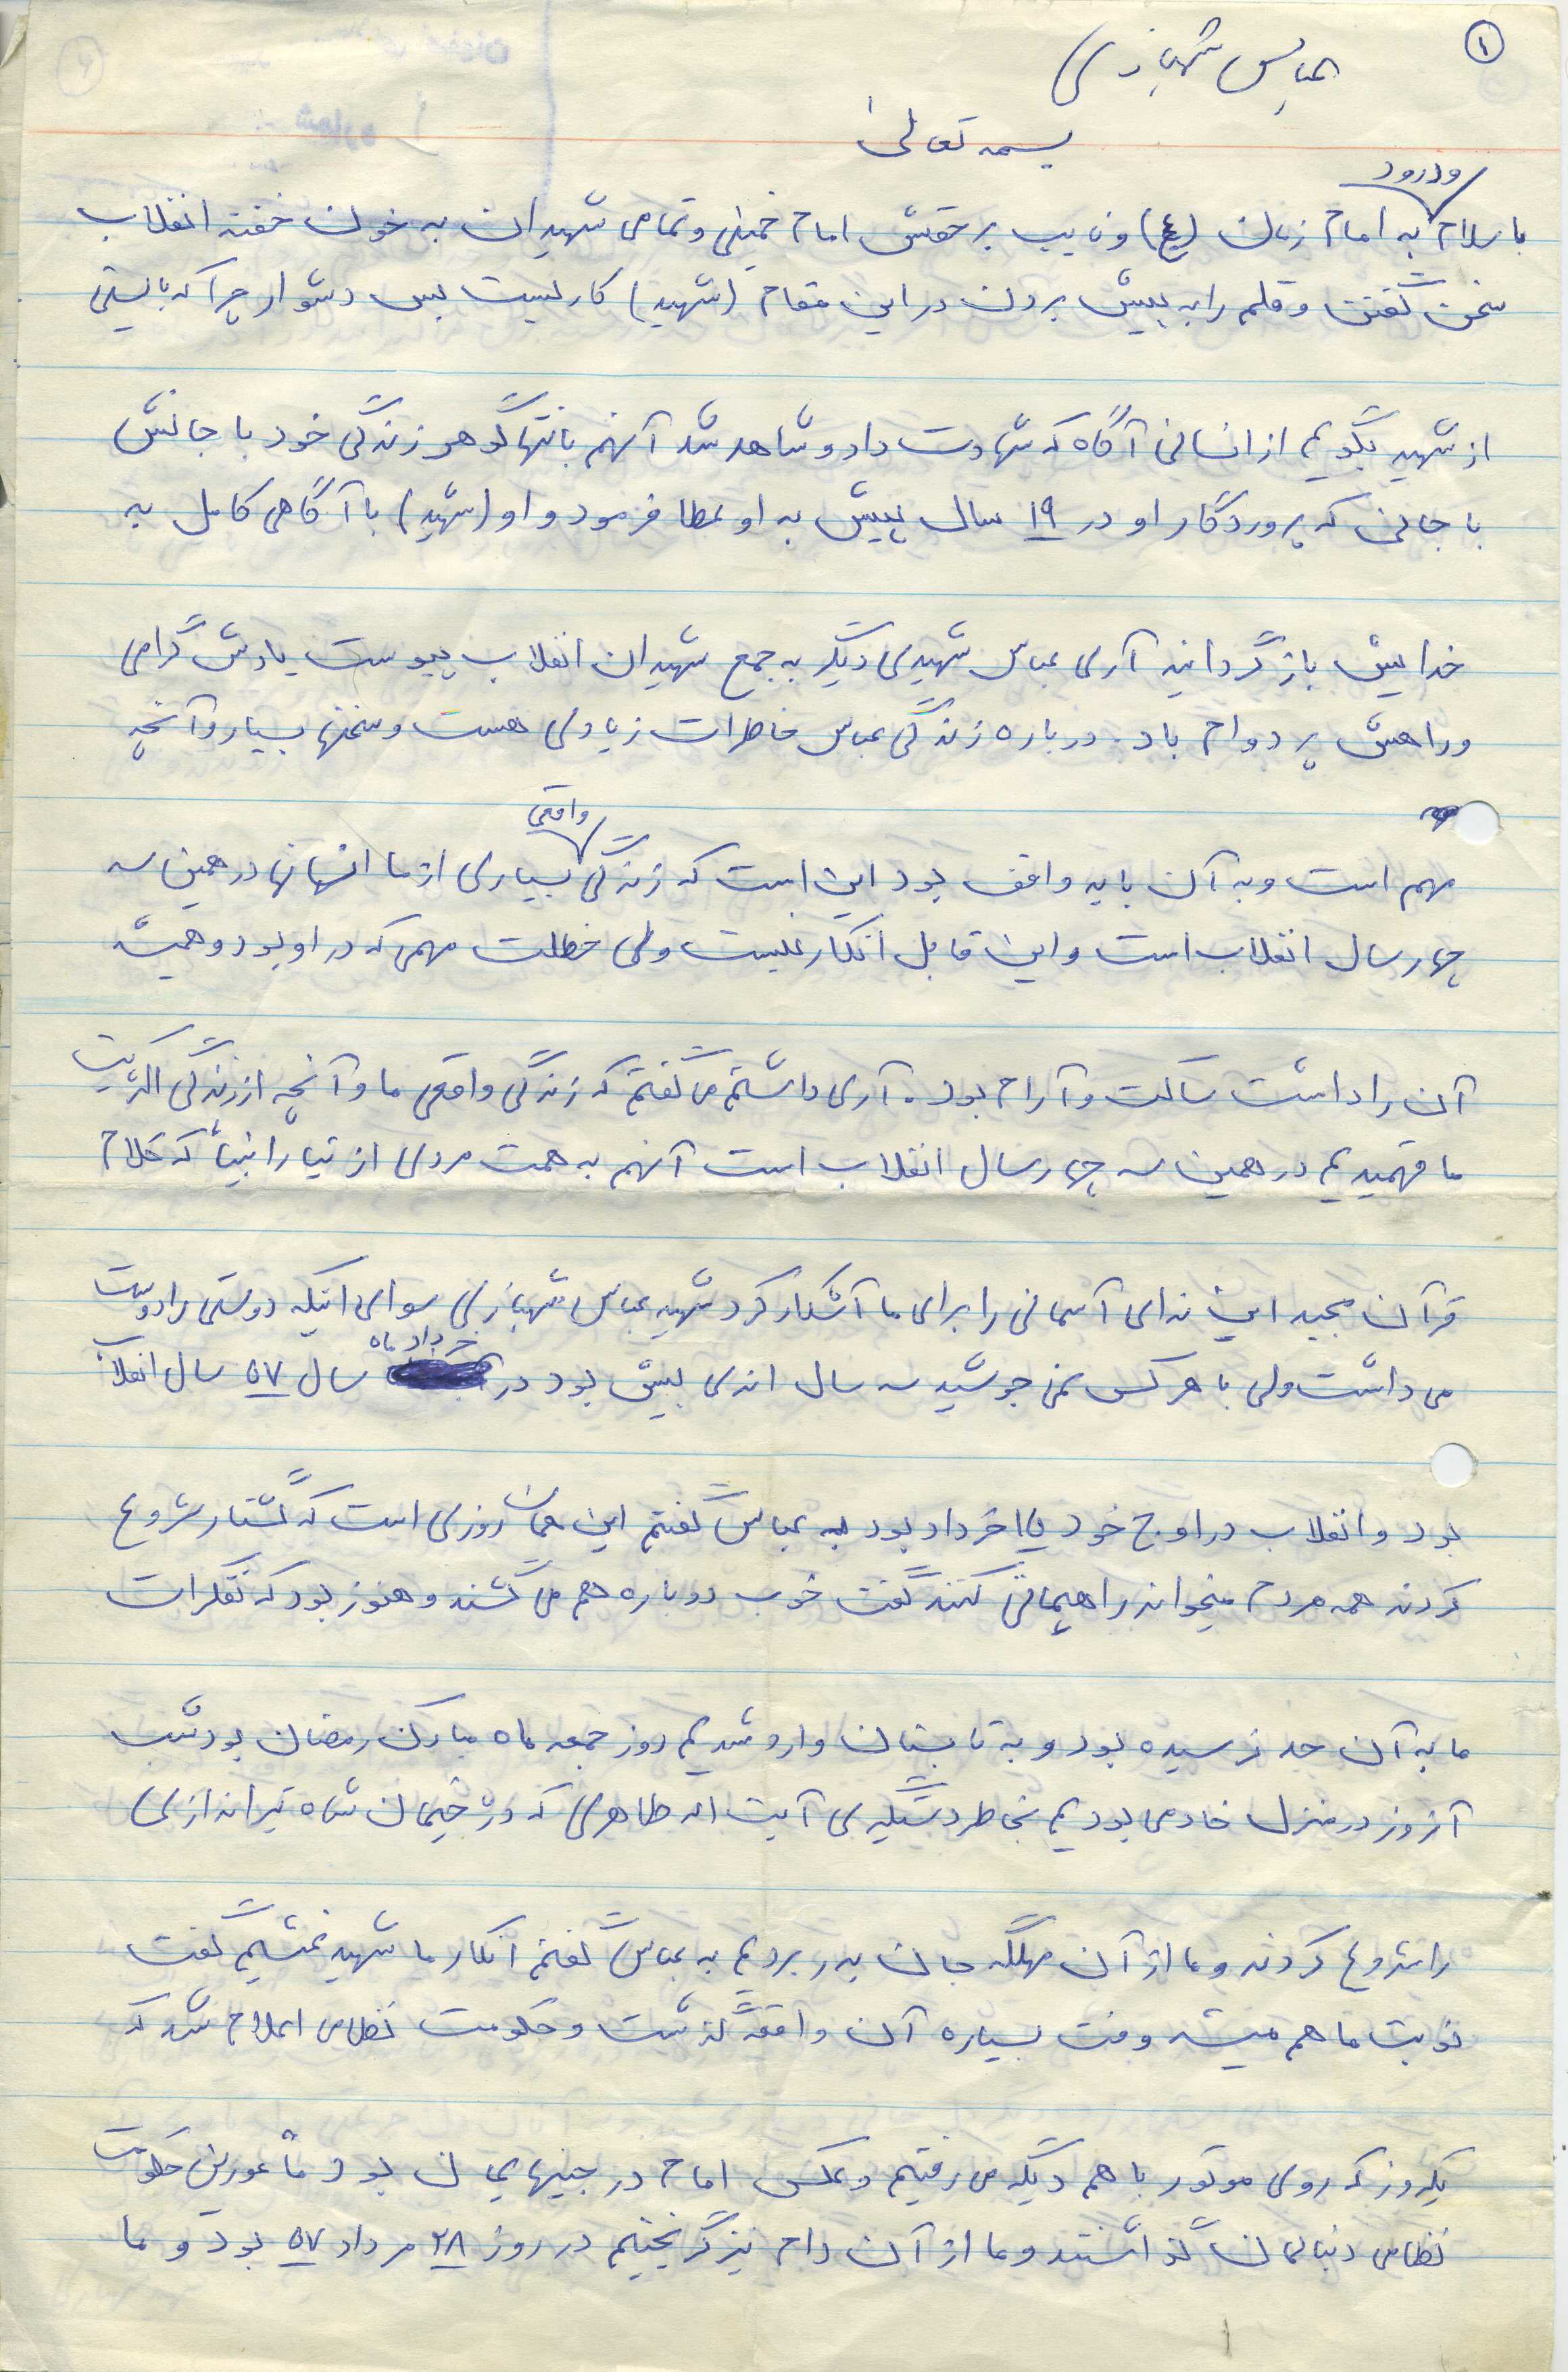 ۱
عباس شهبازی
بسمه تعالی
با سلام ودرود به امام زمان (عج) و نایب بر حقش امام خمینی و تمامی شهیدان به خون خفته انقلاب
سخن گفتن و قلم را به پیش بردن در این مقام (شهید) کاریست بس دشوار چرا که بایستی
از شهید بگویم از انسانی آگاه که شهادت داد و شاهد شد آنهم با تنها گوهر زندگی خود با جانش
با جانی که پروردگار او در ۱۹ سال پیش به او عطا فرمود و او (شهید) با آگاهی کامل به
خدایش باز گردانید آری عباس شهیدی دیگر به جمع شهیدان انقلاب پیوست یادش گرامی
و راهش پر دوام باد. درباره زندگی عباس خاطرات زیادی هست و سخنها بسیار و آنچه
مهم است و به آن باید واقف بود این است که زندگی واقعی بسیاری از ما انسانها در همین سه
چهار سال انقلاب است و این قابل انکار نیست ولی خصلت مهمی که در او بود و همیشه
آن را داشت ساکت و آرام بود. آری داشتم می گفتم که زندگی واقعی ما و آنچه از زندگی اکثریت
ما فهمیدیم در همین سه چهار سال انقلاب است آنهم به همت مردی از تبار انبیاء که کلام
قرآن مجید این ندای آسمانی را برای ما آشکار کرد شهید عباس شهبازی سوای اینکه دوستی را دوست
می داشت ولی با هر کس نمی جوشید سه سال اندی پیش بود در خرداد ماه سال ۵۷ سال انقلاب
بود و انقلاب در اوج خود ۱۵ خرداد بود به عباس گفتم این همان روزی است که کشتار شروع
کردند همه مردم میخواند راهپیمائی کنند گفت خوب دوباره هم می کشند و هنوز بود که تفکرات
ما به آن حد نرسیده بود و به تابستان وارد شدیم روز جمعه ماه مبارک رمضان بود شب
آنروز در منزل خادمی بودیم بخاطر دستگیری آیت اله طاهری که دژخیمان شاه تیراندازی
را شروع کردند و ما از آن مهلکه جان بدر بردیم به عباس گفتم انگار ما شهید نمیشیم گفت
نوبت ما هم میشه وقت بسیاره آن واقعه گذشت و حکومت نظامی اعلام شد که
یکروز که روی موتور با هم دیگه می رفتیم و عکس امام در جیبهایمان بود مأمورین حکومت
نظامی دنبالمان گذاشتند و ما از آن دام نیز گریختیم در روز ۲۸ مرداد ۵۷ بود و ما